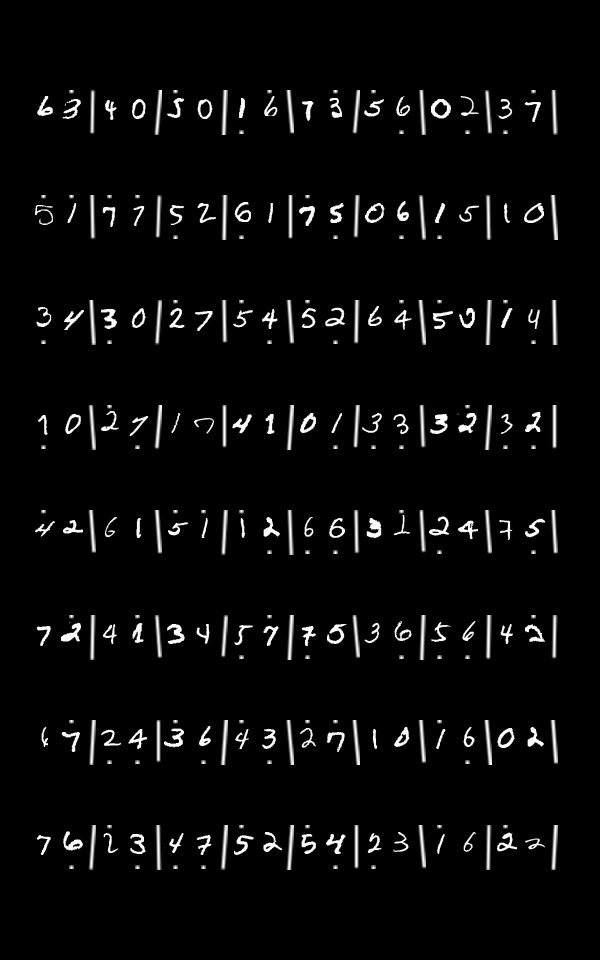 6 3 | 4 0 | 5 0 | 1 6 | 7 3 | 5 6 | 0 2 | 3 7 |
5 1 | 7 7 | 5 2 | 6 1 | 7 5 | 0 6 | 1 5 | 1 0 |
3 4 | 3 0 | 2 7 | 5 4 | 5 2 | 6 4 | 5 0 | 1 4 |
1 0 | 2 7 | 1 7 | 4 1 | 0 1 | 3 3 | 3 2 | 3 2 |
4 2 | 6 1 | 5 1 | 1 2 | 6 6 | 3 1 | 2 4 | 7 5 |
7 2 | 4 1 | 3 4 | 5 7 | 7 5 | 3 6 | 5 6 | 4 2 |
6 7 | 2 4 | 3 6 | 4 3 | 2 7 | 1 0 | 1 6 | 0 2 |
7 6 | 2 3 | 4 7 | 5 2 | 5 4 | 2 3 | 1 6 | 2 2 |